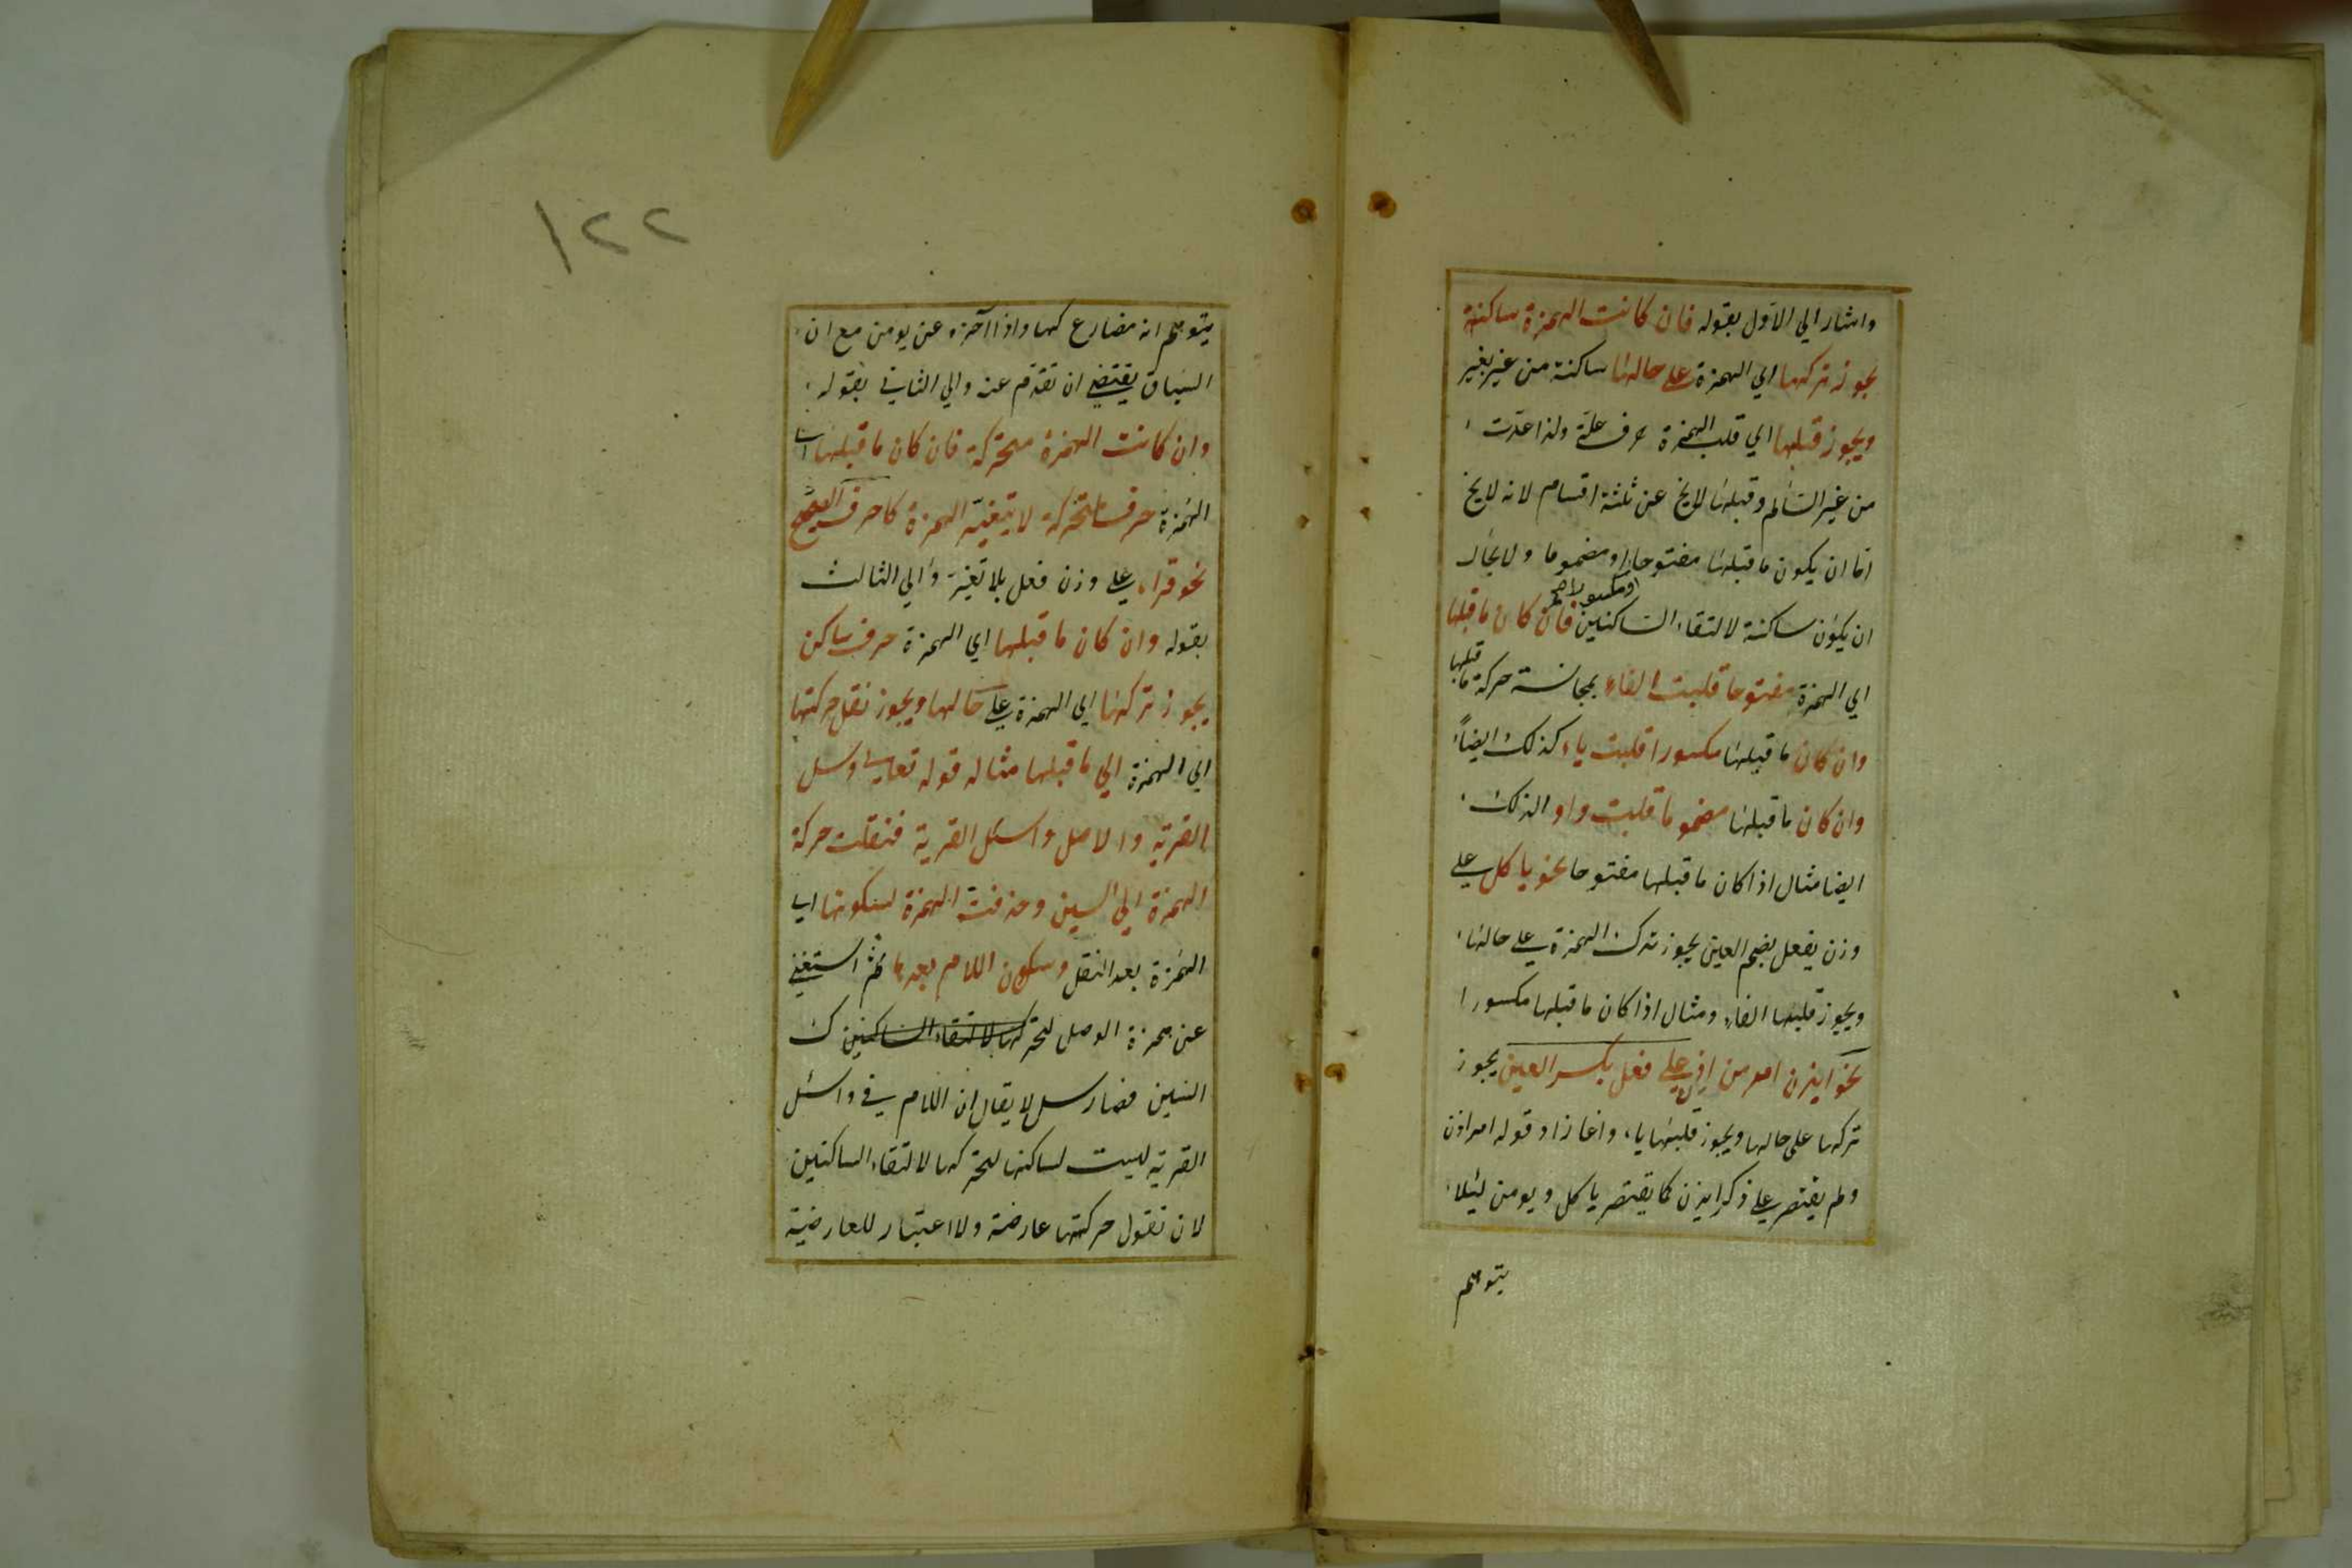 واشار الي الاول بقوله فان كانت الهمزة ساكنة
يجوز تركها اي الهمزة علي حالها ساكنة من غير تغير
ويجوز قبلها اي قلب الهمزة حرف علة ولذا عدت
من غير السالم وقبلها لايخ عن ثلثة اقسام لانه لايخ
اما ان يكون ما قبلها مفتوحا او مضموما ولا يجاز
او مكسورا صح
ان يكون ساكنة لالتقاء الساكنين فان كان ما قبلها
اي الهمزة مفتوحا قلبت الفاء بمجانسة حركة ما قبلها
وان كان ما قبلها مكسورا قلبت ياء كذلك ايضاً
وان كان ما قبلها مضموما قلبت واو الذلك
ايضا مثال اذا كان ما قبلها مفتوحا نحو ياكل علي
وزن يفعل بضم العين يجوز ترك الهمزة علي حالها
ويجوز قلبها الفاء ومثال اذا كان ما قبلها مكسورا
نحو ايذن امر من علي فعل بكسر العين يجوز
تركها علي حالها ويجوز قلبها ياء وانما زاد قوله امر اذن
ولم يقتصر علي ذكر ايذن كما يقتصر ياكل ويومن لئلا
يتوهم
١٢٢
يتوهم انه مضارع كها واذا آخره عن يومن مع ان
السياق يقتضي ان تقدم عنه والي الثاني بقوله
وان كانت الهمزة متحركة فان كان ما قبلها اي
الهمزة حرفا متحركة لا يتغير الهمزة كاحرف الصحيح
نحو قراء علي وزن فعل بلا تغير والي الثالث
بقوله وان كان ما قبلها اي الهمزة حرف ساكن
يجوز تركها اي الهمزة علي حالها ويجوز نقل حركتها
اي الهمزة الي ما قبلها مثاله قوله تعالي وسل
القرية والاصل واسئل القرية فنقلت حركة
الهمزة الي السين وحذفت الهمزة لسكونها اي
الهمزة بعد النقل وسكون اللام بعدها ثم استغني
عن همزة الوصل لتحركها لالتقاء الساكنين ك
السين فصار سل لا يقال ان اللام في واسئل
القرية ليست لساكنها لتحركها لالتقاء الساكنين
لان نقول حركتها عارضة ولا اعتبار للعارضية